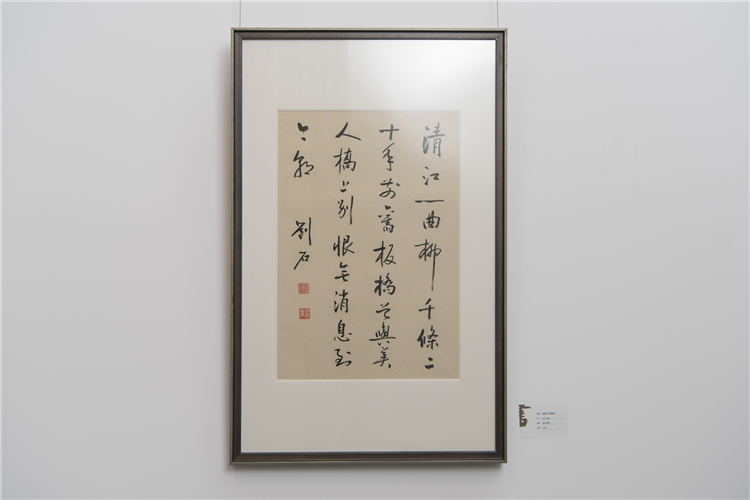 清江一曲柳千條二
十年前舊板橋曾與美
人橋上別恨無消息到
今朝 劉石